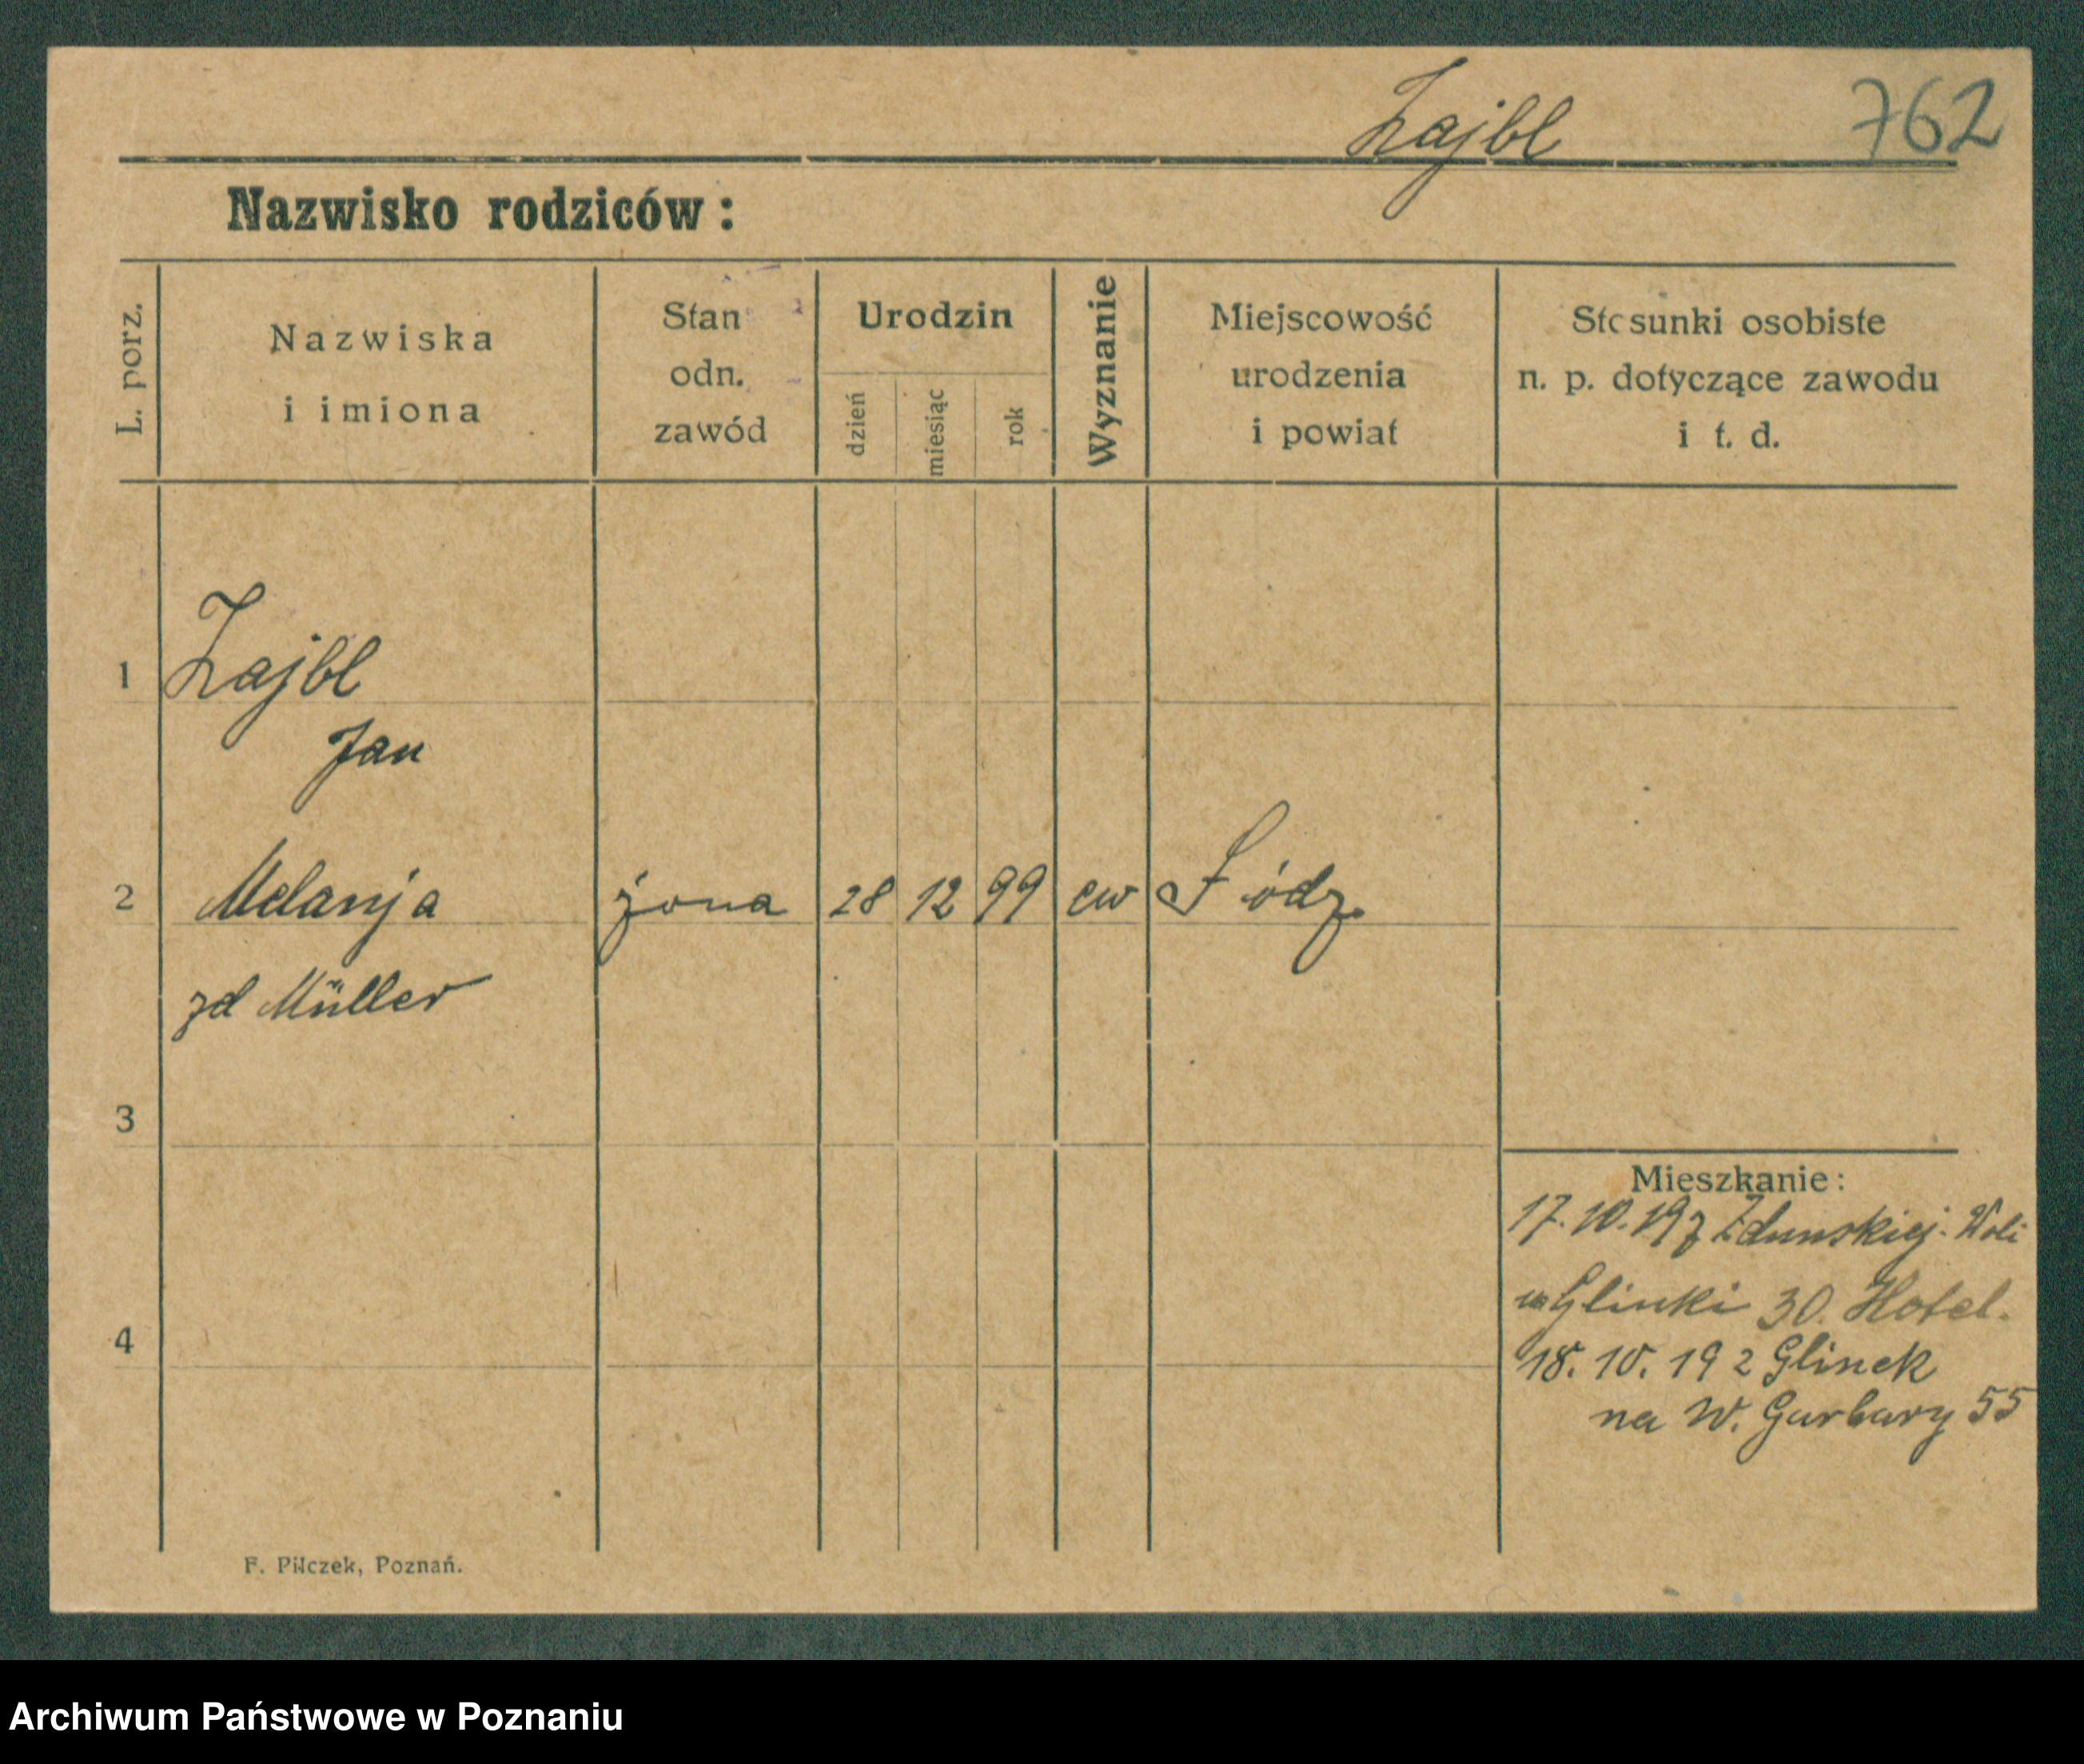 Zajbl 762
Nazwisko rodziców:
L. porz.
Nazwiska
i imiona
Stan
odn.
zawód
Urodzin
dzień
miesiąc
rok
Wyznanie
Miejscowość
urodzenia
i powiat
Stosunki osobiste
n. p. dotyczące zawodu
i t. d.
1 Zajbl
Jan
2 Melanja żona 28 12 99 ew Łódz
zd Müller
3
4
Mieszkanie:
17. 10. 19 z Zdunskiej Woli
Glinki 30. Hotel.
18. 10. 19 z Glinek
na W. Garbary 55
F. Pilczek, Poznań.
Archiwum Państwowe w Poznaniu